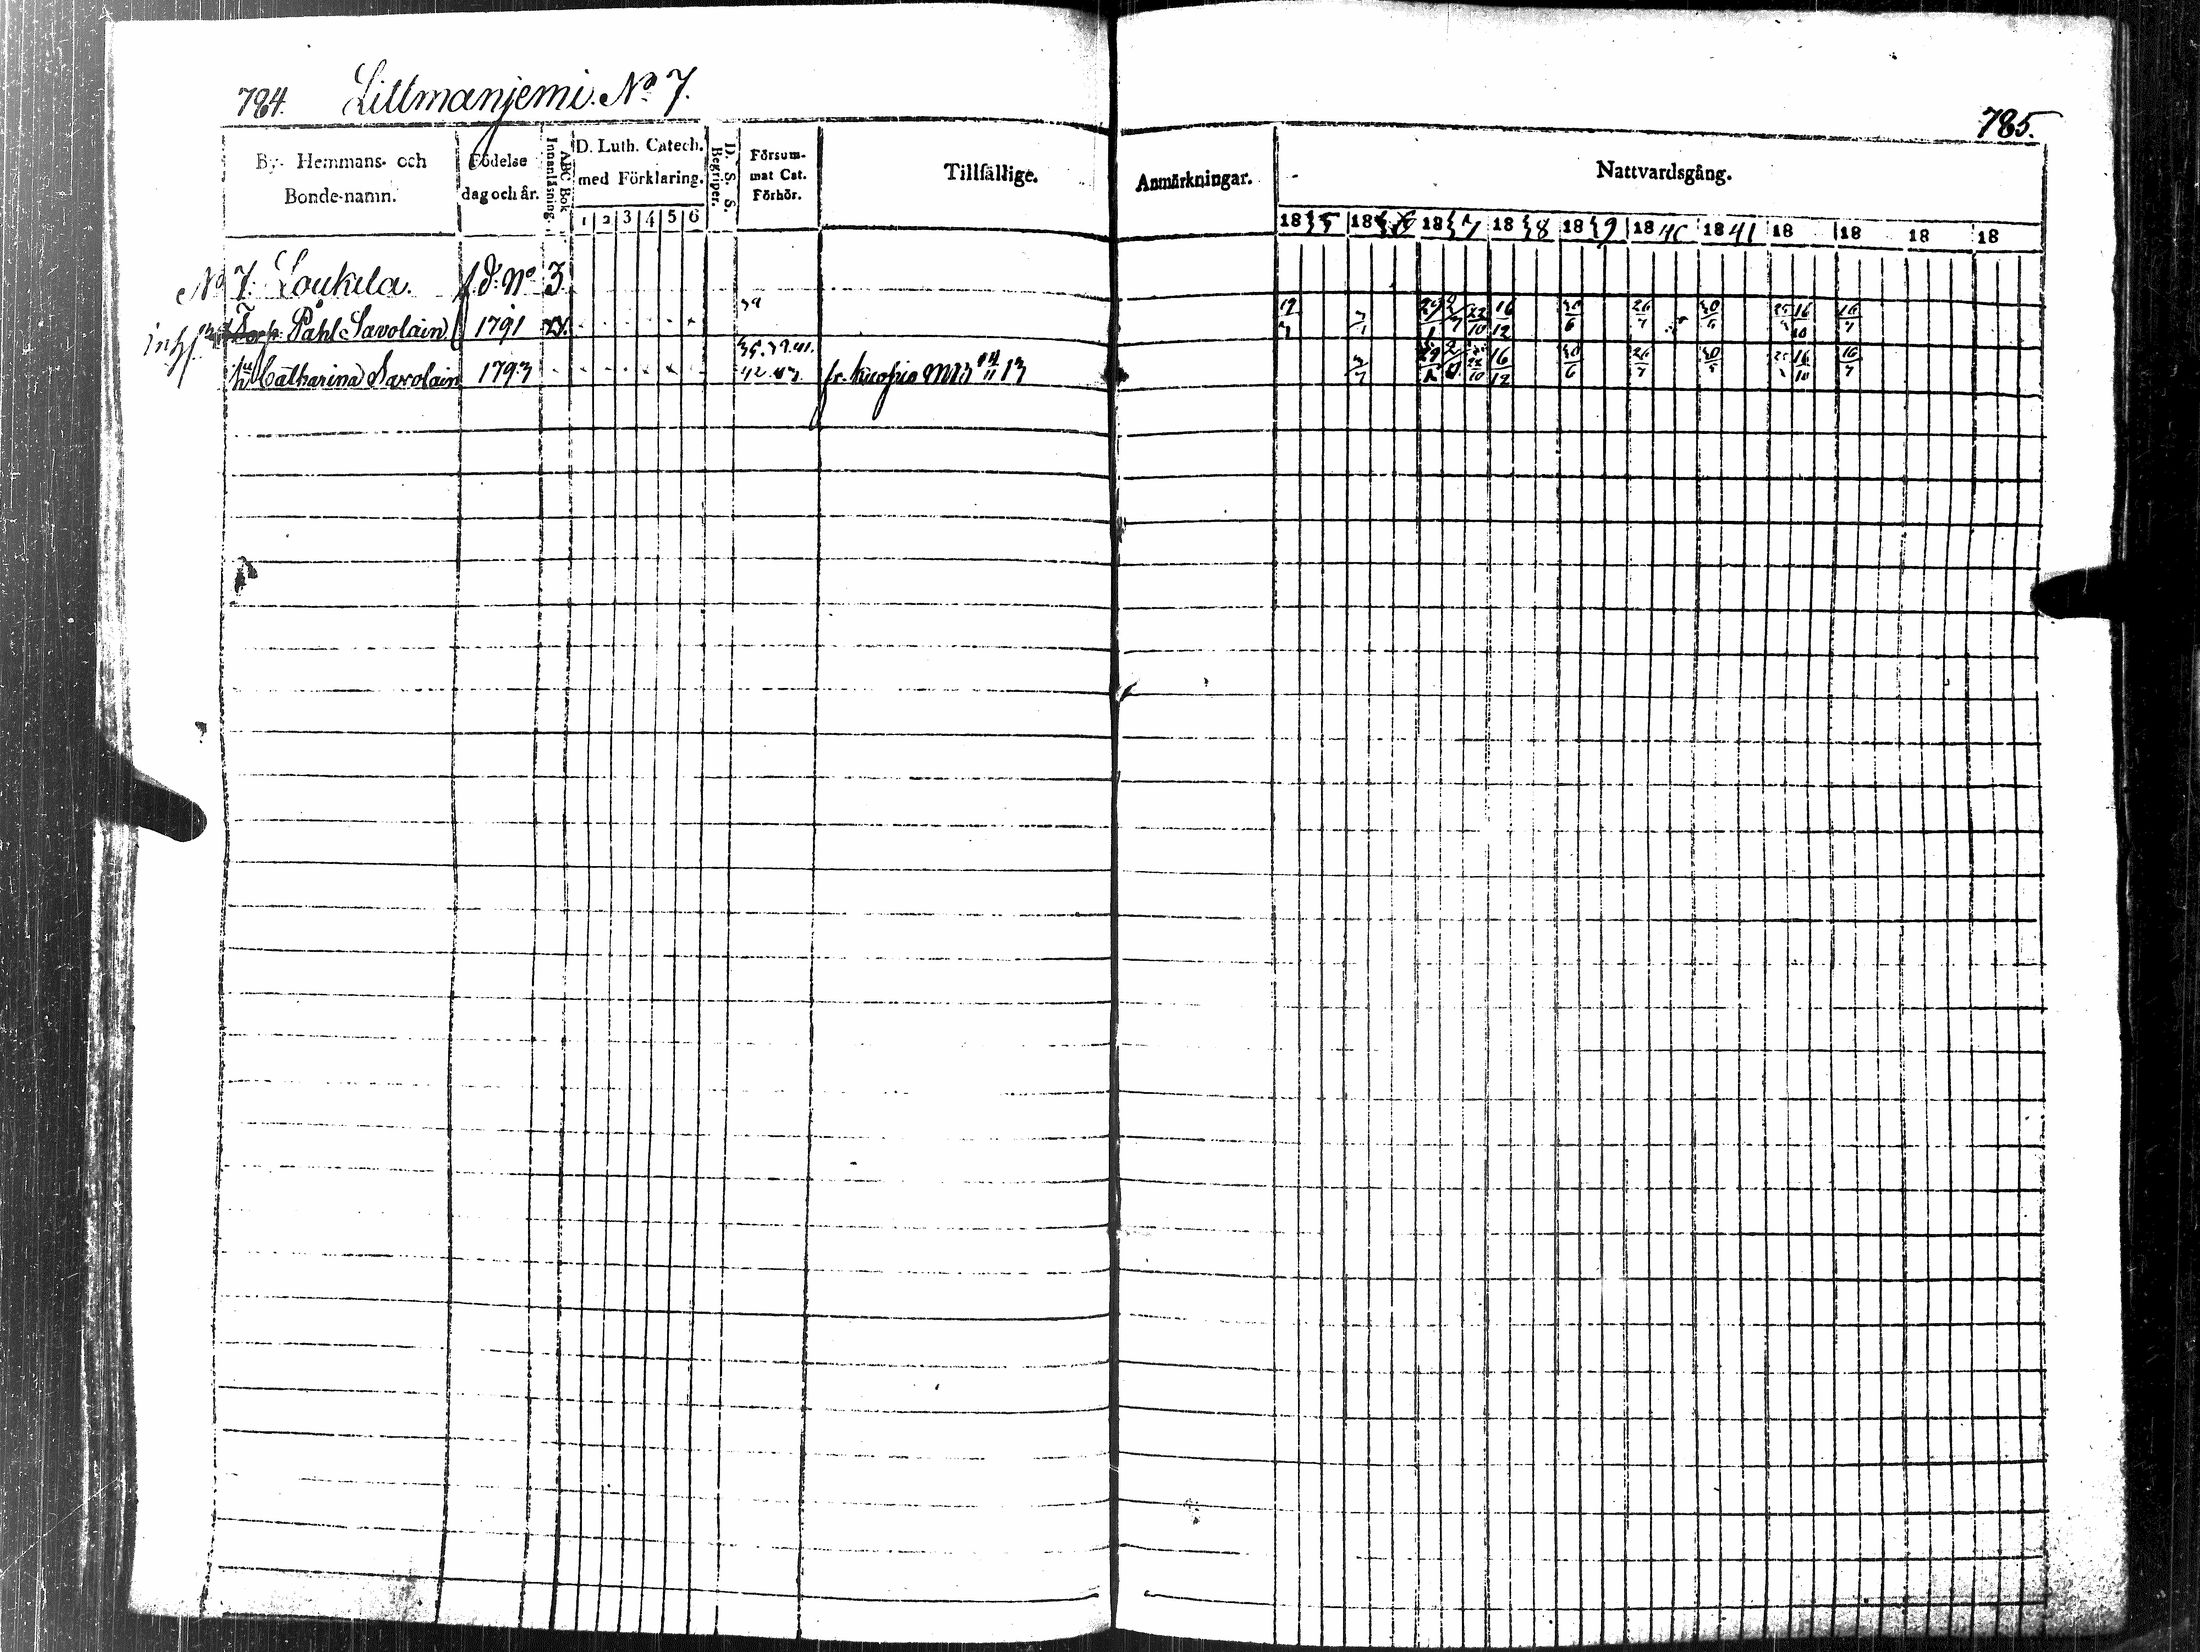 784. Littmanjemi. No 7.
785.
By- Hemmans- och Bonde-namn.
Födelse dag och år.
ABC Bok Innanläsning.
D. Luth. Catech. med Förklaring.
1 2 3 4 5 6
D. S. S. Begriper.
Försum-mat Cat. Förhör.
Tillfällige.
Anmärkningar.
Nattvardsgång.
1835 1836 1837 1838 1839 1840 1841 18 18 18 18
No 7. Loukila. f.d. No 3
Påhl Savolain 1791 39
12/7 29/1 2/7 22/10 16/12 30/6 26/7 30/6 16/10 16/7
hu Catharina Savolain 1793 35. 39. 41. 42. 43. fr. Kuopio 13
29/1 16/12 30/6 26/7 30/6 16/10 16/7